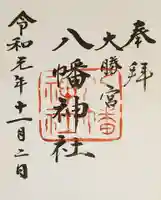 奉拝
大勝宮
八幡神社
令和元年十一月二日